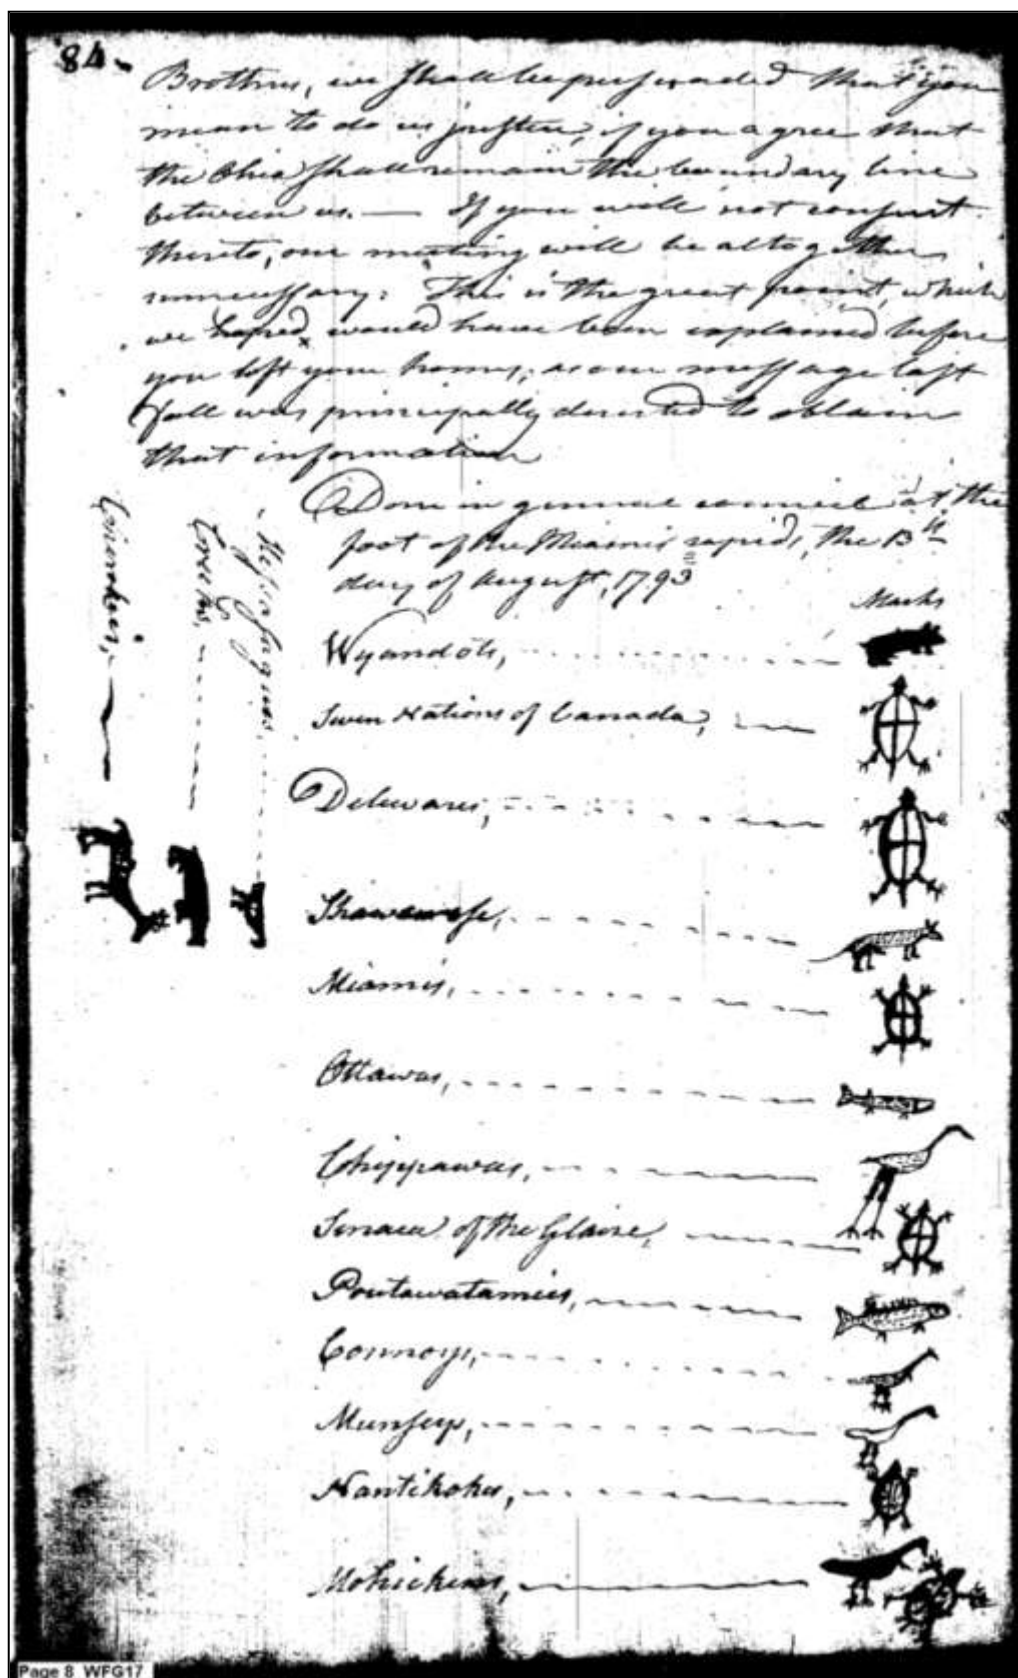 84-
Brothers, we shall be perswaded that you
mean to do us justice, if you agree that
the Ohio shall remain the boundary line
between us. — If you will not consent
thereto, our meeting will be altogether
unnecessary: This is the great point, which
we hoped, would have been explained before
you left your homes; as our message last
fall was principally directed to obtain
that information
Done in general council at the
foot of the Miamis rapids, the 13th
day of August, 1793
Marks
Wyandots,
Seven Nations of Canada,
Delewares,
Shawanese,
Miamis,
Ottawas,
Chippawas,
Senacas of the Glaize,
Poutawatamies,
Connoys,
Munseys,
Nantikokes,
Mohickens,
Messasagues
Creeks,
Cherokees,
Page 8 WFG17